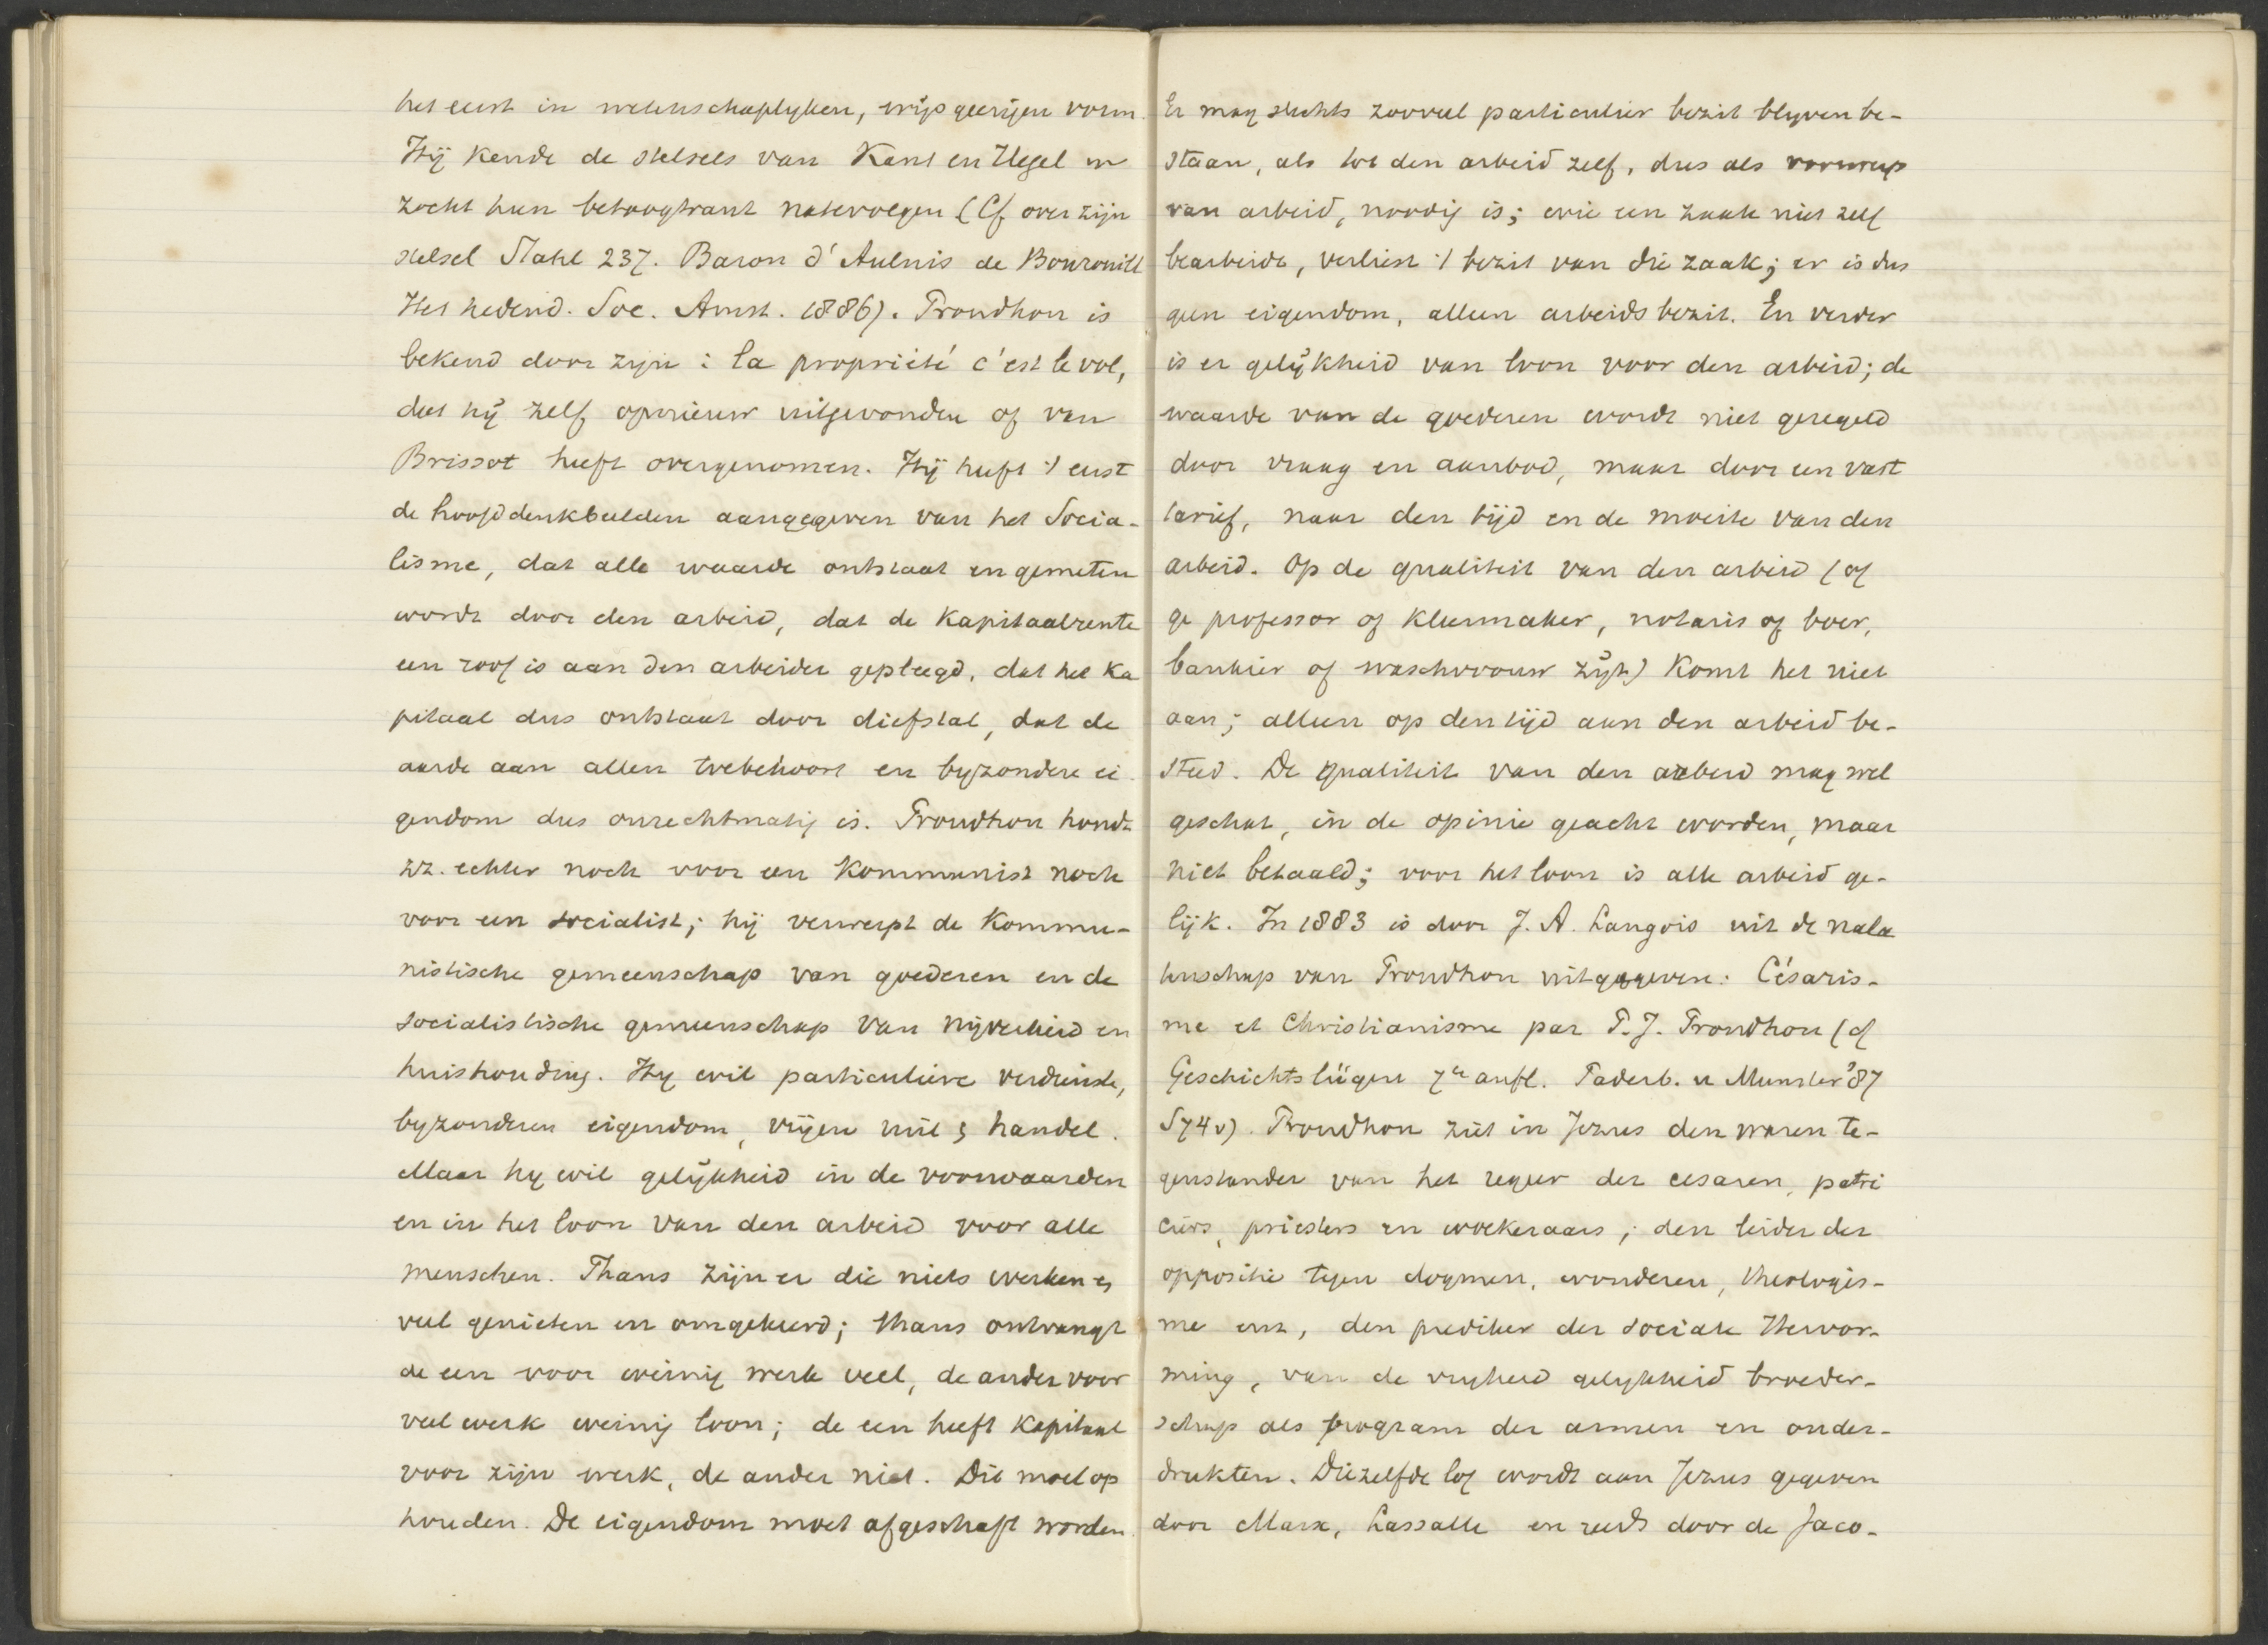 het eerst in wetenschaplyken, wijsgeerigen vorm.
Hij kende de stelsels van Kant en Hegel en
zocht hun betoogtrant natevolgen (Cf over zijn
stelsel Stahl 237. Baron d'Aulnis de Bourouill
Het hedend. Soc. Amst. 1886). Proudhon is
bekend door zijn: la propriété c'est le vol,
dat hij zelf opnieuw uitgevonden of van
Brissot heeft overgenomen. Hij heeft 't eerst
de hoofddenkbeelden aangegeven van het Socia-
lisme, dat alle waarde ontstaat en gemeten
wordt door den arbeid, dat de kapitaalrente
een roof is aan den arbeider gepleegd, dat het ka
pitaal dus ontstaat door diefstal, dat de
aarde aan allen toebehoort en byzondere ei-
gendom dus onrechtmatig is. Proudhon houdt
zz. echter noch voor een kommunist noch
voor een socialist; hij verwerpt de kommu-
nistische gemeenschap van goederen en de
socialistische gemeenschap van nijverheid en
huishouding. Hy wil particuliere verdienste,
byzonderen eigendom, vrijen ruil & handel.
Maar hy wil gelijkheid in de voorwaarden
en in het loon van den arbeid voor alle
menschen. Thans zijn er die niets werken en
veel genieten en omgekeerd; thans ontvangt
de een voor weinig werk veel, de ander voor
veel werk weinig loon; de een heeft kapitaal
voor zijn werk, de ander niet. Dit moet op
houden. De eigendom moet afgeschaft worden.
Er mag slechts zooveel particulier bezit blyven be-
staan, als tot den arbeid zelf, dus als voorwerp
van arbeid, noodig is; wie een zaak niet zelf
bearbeidt, verliest 't bezit van die zaak; er is dus
geen eigendom, alleen arbeidsbezit. En verder
is er gelijkheid van loon voor den arbeid; de
waarde van de goederen wordt niet geregeld
door vraag en aanbod, maar door een vast
tarief, naar den tijd en de moeite van den
arbeid. Op de qualiteit van den arbeid (of
ge professor of kleermaker, notaris of boer,
bankier of waschvrouw zijt) komt het niet
aan; alleen op den tijd aan den arbeid be-
steed. De qualiteit van den arbeid mag wel
geschat, in de opinie geacht worden, maar
niet betaald; voor het loon is alle arbeid ge-
lijk. In 1883 is door J. A. Langois uit de nala
tenschap van Proudhon uitgegeven: Césaris-
me et Christianisme par P. J. Proudhon (cf
Geschichtslügen 7e aufl. Paderb. u Munster '87
S74v). Proudhon ziet in Jezus den waren te-
genstander van het regeer der cesaren, patri
ciërs, priesters en woekeraars; den leider der
oppositie tegen dogmen, wonderen, theologis-
me enz, den prediker der sociale Hervor-
ming, van de vryheid gelykheid broeder-
schap als program der armen en onder-
drukten. Diezelfde lof wordt aan Jezus gegeven
door Marx, Lassalle en reeds door de Jaco-